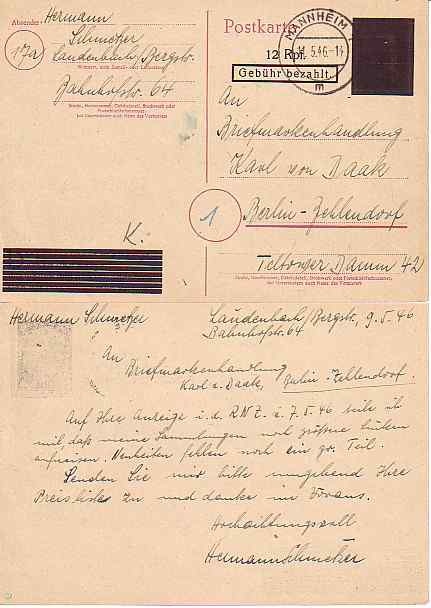 Absender: Hermann
Schmetzer
17a
Laudenbach/Bergstr.
Wohnort, auch Zustell- oder Leitpostamt
Bahnhofstr. 64
Straße, Hausnummer, Gebäudeteil, Stockwerk oder
Postschließfachnummer,
bei Untermietern auch Name des Vermieters
Postkarte
MANNHEIM
5.46.-14
m
12 Rpf.
Gebühr bezahlt.
An
Briefmarkenhandlung
Karl von Daak
1
Berlin-Zehlendorf
Teltower Damm 42
Straße, Hausnummer, Gebäudeteil, Stockwerk oder Postschließfachnummer,
bei Untermietern auch Name des Vermieters
K.
Hermann Schmetzer
Laudenbach/Bergstr., 9.5.46
Bahnhofstr. 64
An
Briefmarkenhandlung
Karl v. Daak, Berlin-Zehlendorf.
Auf Ihre Anzeige i. d. RNZ. v. 7.5.46 teile ich
mit, daß meine Sammlungen noch größere Lücken
aufweisen. Neuheiten fehlen noch ein gr. Teil.
Senden Sie mir bitte umgehend Ihre
Preisliste zu und danke im Voraus.
Hochachtungsvoll
Hermann Schmetzer